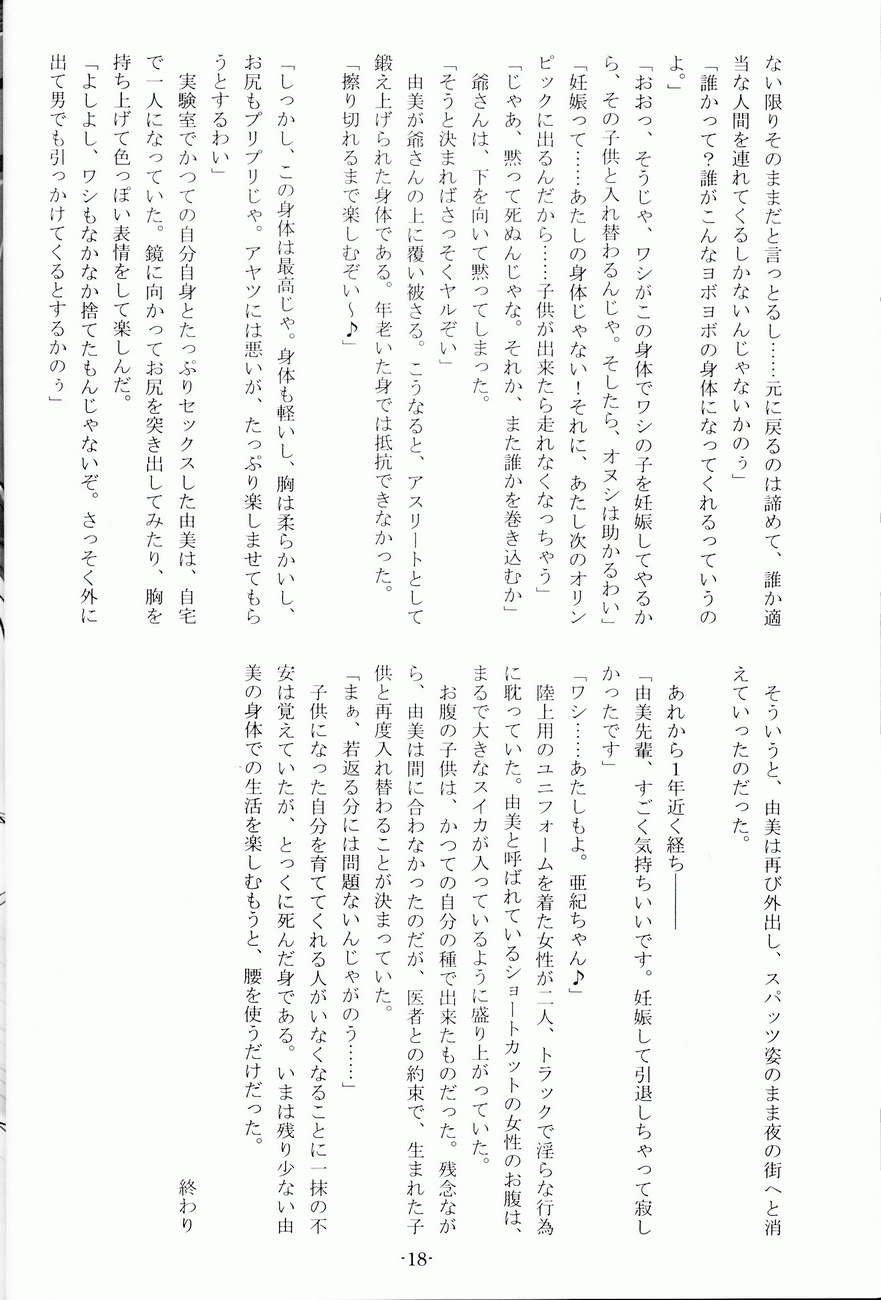 ない限りそのままだと言っとるし……元に戻るのは諦めて、誰か適
当な人間を連れてくるしかないんじゃないかのぅ」
「誰かって？誰がこんなヨボヨボの身体になってくれるっていうの
よ。」
「おおっ、そうじゃ、ワシがこの身体でワシの子を妊娠してやるか
ら、その子供と入れ替わるんじゃ。そしたら、オヌシは助かるわい」
「妊娠って……あたしの身体じゃない！それに、あたし次のオリン
ピックに出るんだから……子供が出来たら走れなくなっちゃう」
「じゃあ、黙って死ぬんじゃな。それか、また誰かを巻き込むか」
爺さんは、下を向いて黙ってしまった。
「そうと決まればさっそくヤルぞい」
由美が爺さんの上に覆い被さる。こうなると、アスリートとして
鍛え上げられた身体である。年老いた身では抵抗できなかった。
「擦り切れるまで楽しむぞい～♪」
「しっかし、この身体は最高じゃ。身体も軽いし、胸は柔らかいし、
お尻もプリプリじゃ。アヤツには悪いが、たっぷり楽しませてもら
うとするわい」
実験室でかつての自分自身とたっぷりセックスした由美は、自宅
で一人になっていた。鏡に向かってお尻を突き出してみたり、胸を
持ち上げて色っぽい表情をして楽しんだ。
「よしよし、ワシもなかなか捨てたもんじゃないぞ。さっそく外に
出て男でも引っかけてくるとするかのぅ」
そういうと、由美は再び外出し、スパッツ姿のまま夜の街へと消
えていったのだった。
あれから１年近く経ち――――
「由美先輩、すごく気持ちいいです。妊娠して引退しちゃって寂し
かったです」
「ワシ……あたしもよ。亜紀ちゃん♪」
陸上用のユニフォームを着た女性が二人、トラックで淫らな行為
に耽っていた。由美と呼ばれているショートカットの女性のお腹は、
まるで大きなスイカが入っているように盛り上がっていた。
お腹の子供は、かつての自分の種で出来たものだった。残念なが
ら、由美は間に合わなかったのだが、医者との約束で、生まれた子
供と再度入れ替わることが決まっていた。
「まぁ、若返る分には問題ないんじゃがのう……」
子供になった自分を育ててくれる人がいなくなることに一抹の不
安は覚えていたが、とっくに死んだ身である。いまは残り少ない由
美の身体での生活を楽しむもうと、腰を使うだけだった。
終わり
-18-